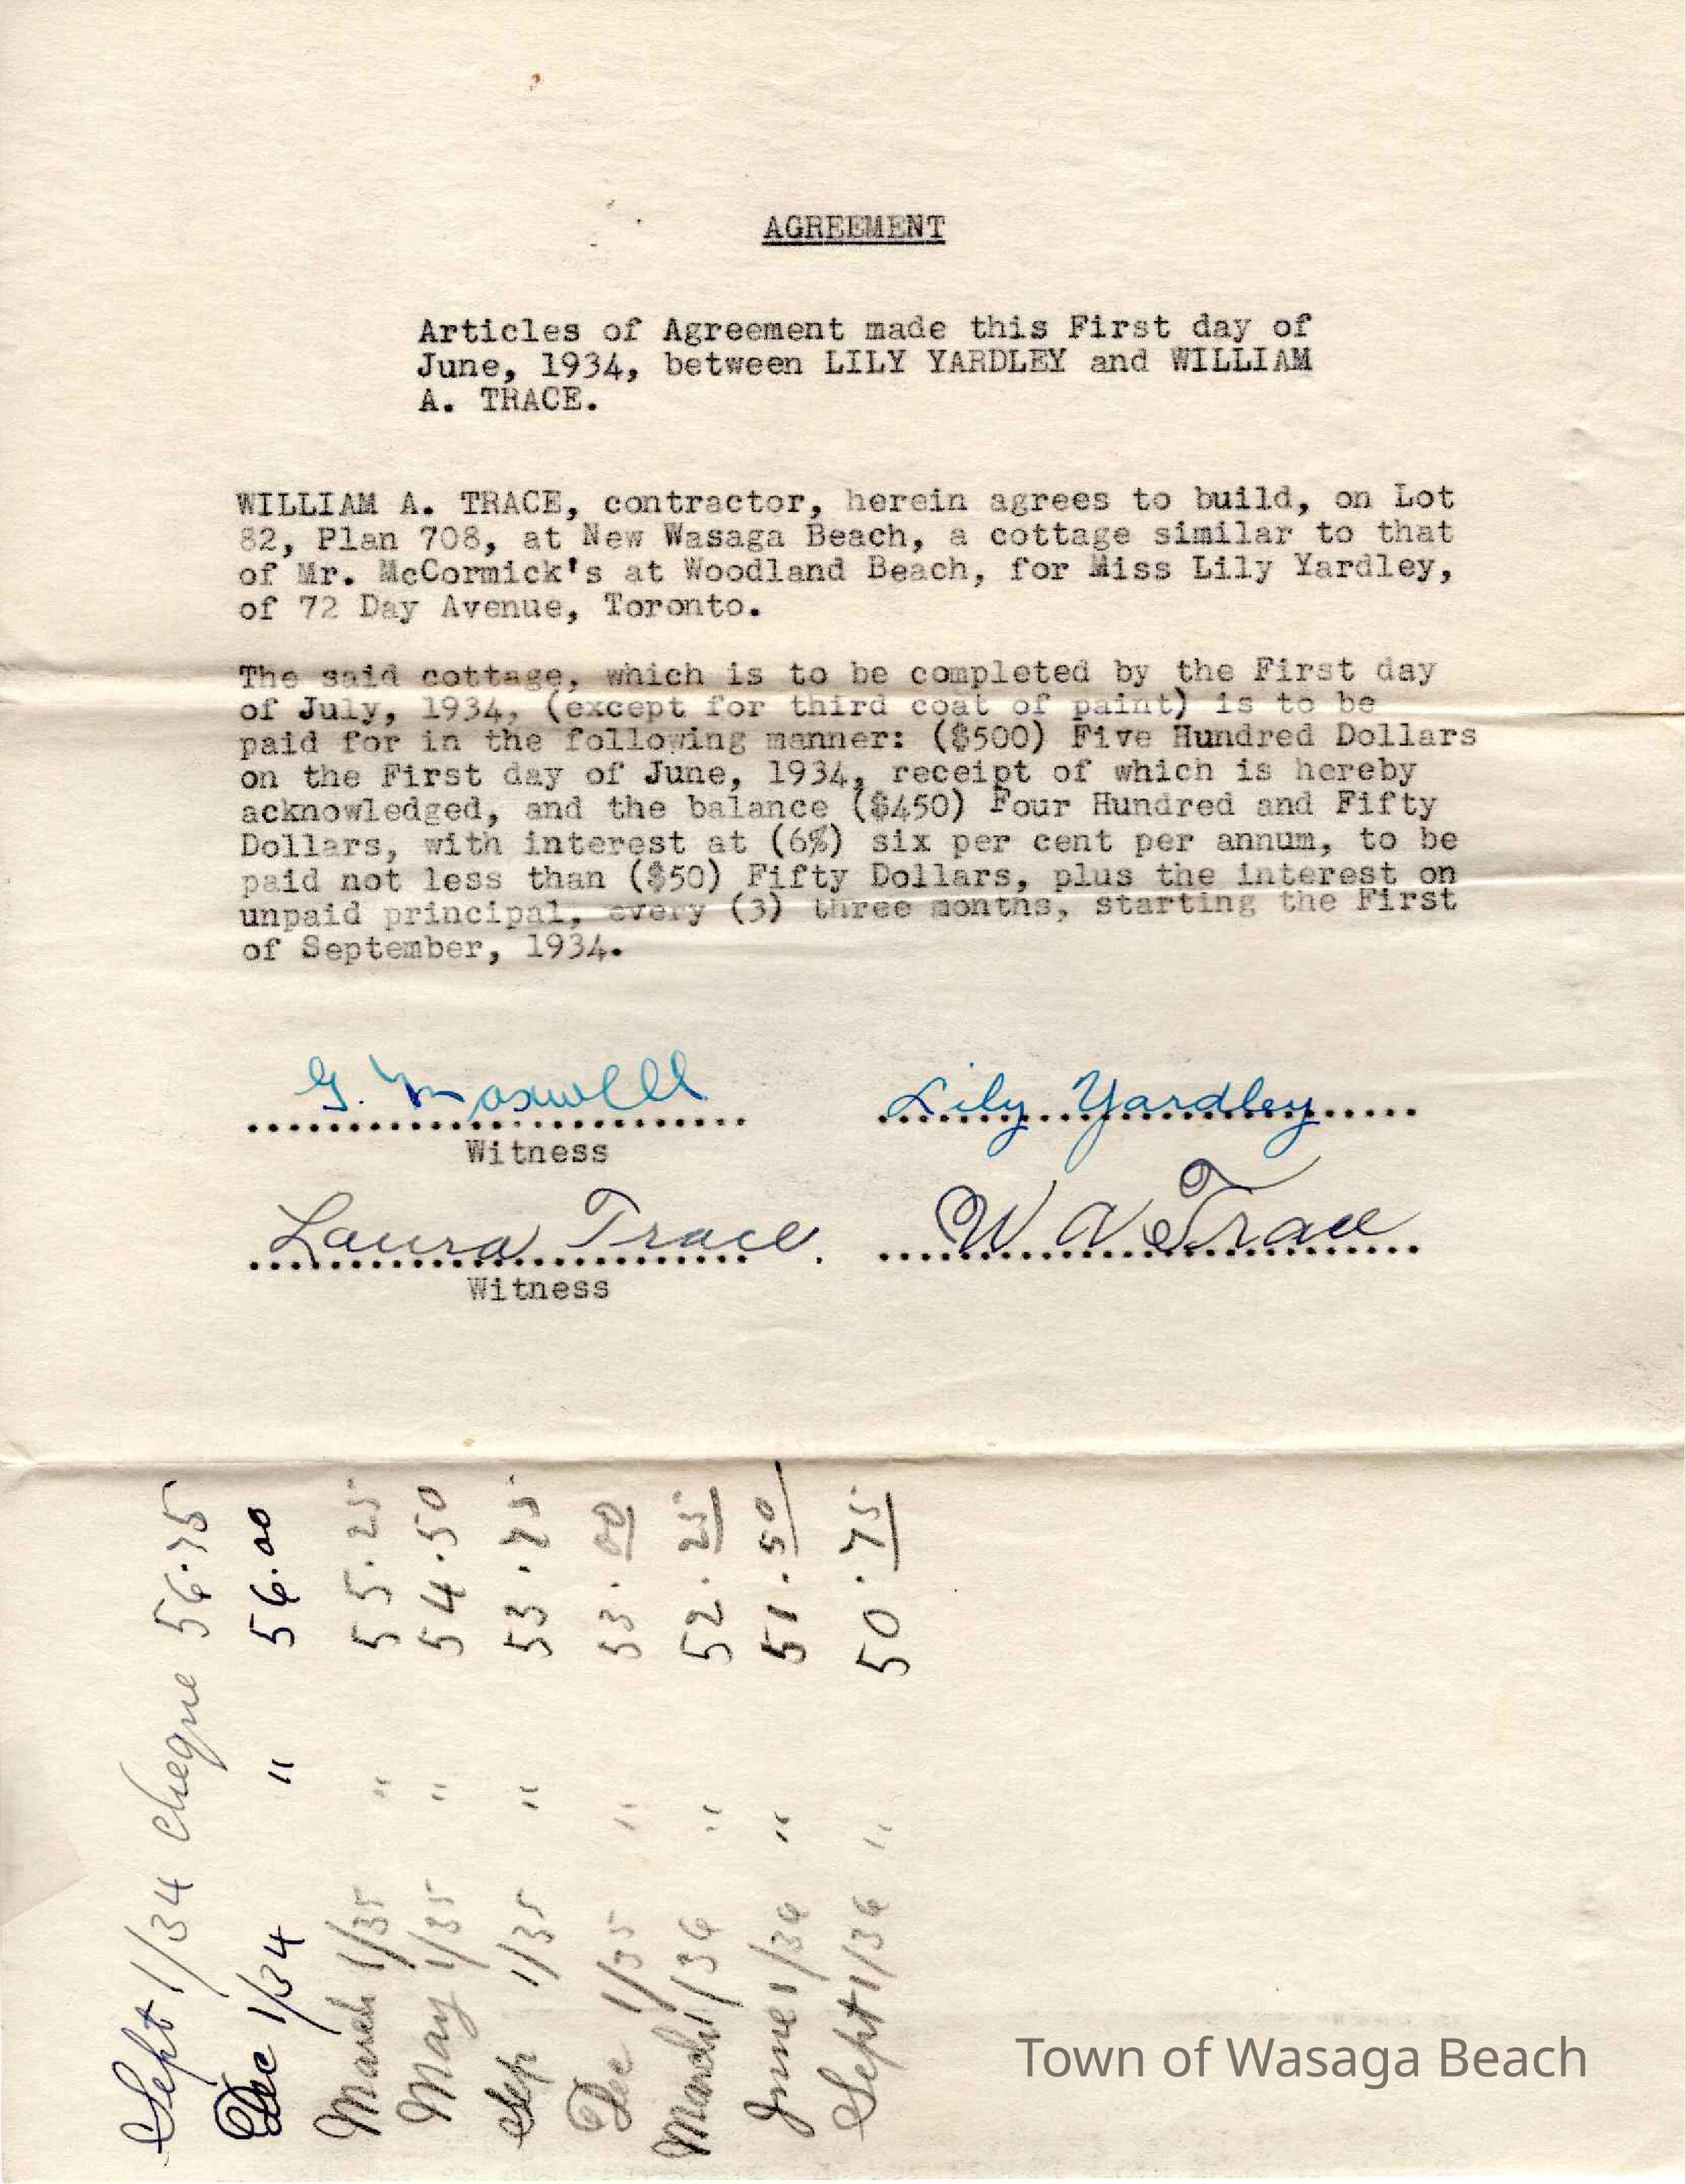 AGREEMENT
Articles of Agreement made this First day of
June, 1934, between LILY YARDLEY and WILLIAM
A. TRACE.
WILLIAM A. TRACE, contractor, herein agrees to build, on Lot
82, Plan 708, at New Wasaga Beach, a cottage similar to that
of Mr. McCormick's at Woodland Beach, for Miss Lily Yardley,
of 72 Day Avenue, Toronto.
The said cottage, which is to be completed by the First day
of July, 1934, (except for third coat of paint) is to be
paid for in the following manner: ($500) Five Hundred Dollars
on the First day of June, 1934, receipt of which is hereby
acknowledged, and the balance ($450) Four Hundred and Fifty
Dollars, with interest at (6%) six per cent per annum, to be
paid not less than ($50) Fifty Dollars, plus the interest on
unpaid principal, every (3) three months, starting the First
of September, 1934.
G. Maxwell
Lily Yardley
Witness
Laura Trace.
W A Trace
Witness
Sept 1/34 cheque 56.75
Dec 1/34 " 56.00
March 1/35 " 55.25
May 1/35 " 54.50
Sep 1/35 " 53.75
Dec 1/35 " 53.00
March 1/36 " 52.25
June 1/36 " 51.50
Sept 1/36 " 50.75
Town of Wasaga Beach